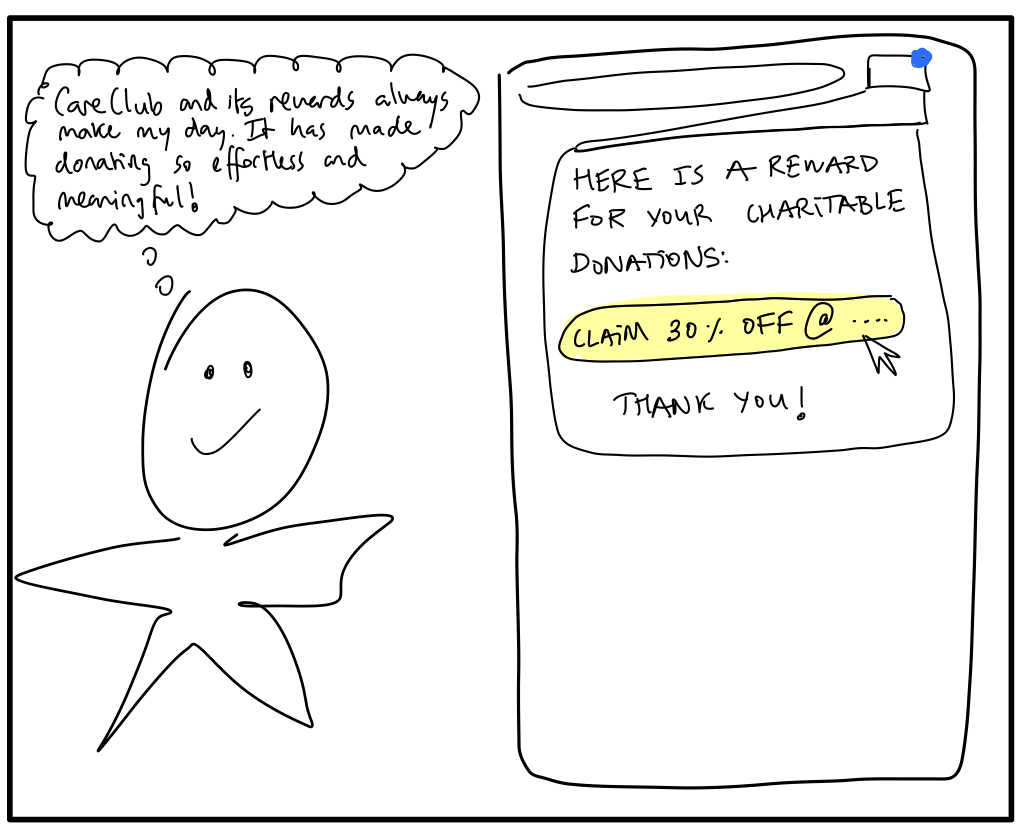 CareClub and its rewards always
make my day. It has made
donating so effortless and
meaningful!
HERE IS A REWARD
FOR YOUR CHARITABLE
DONATIONS:
CLAIM 30% OFF @ ....
THANK YOU!